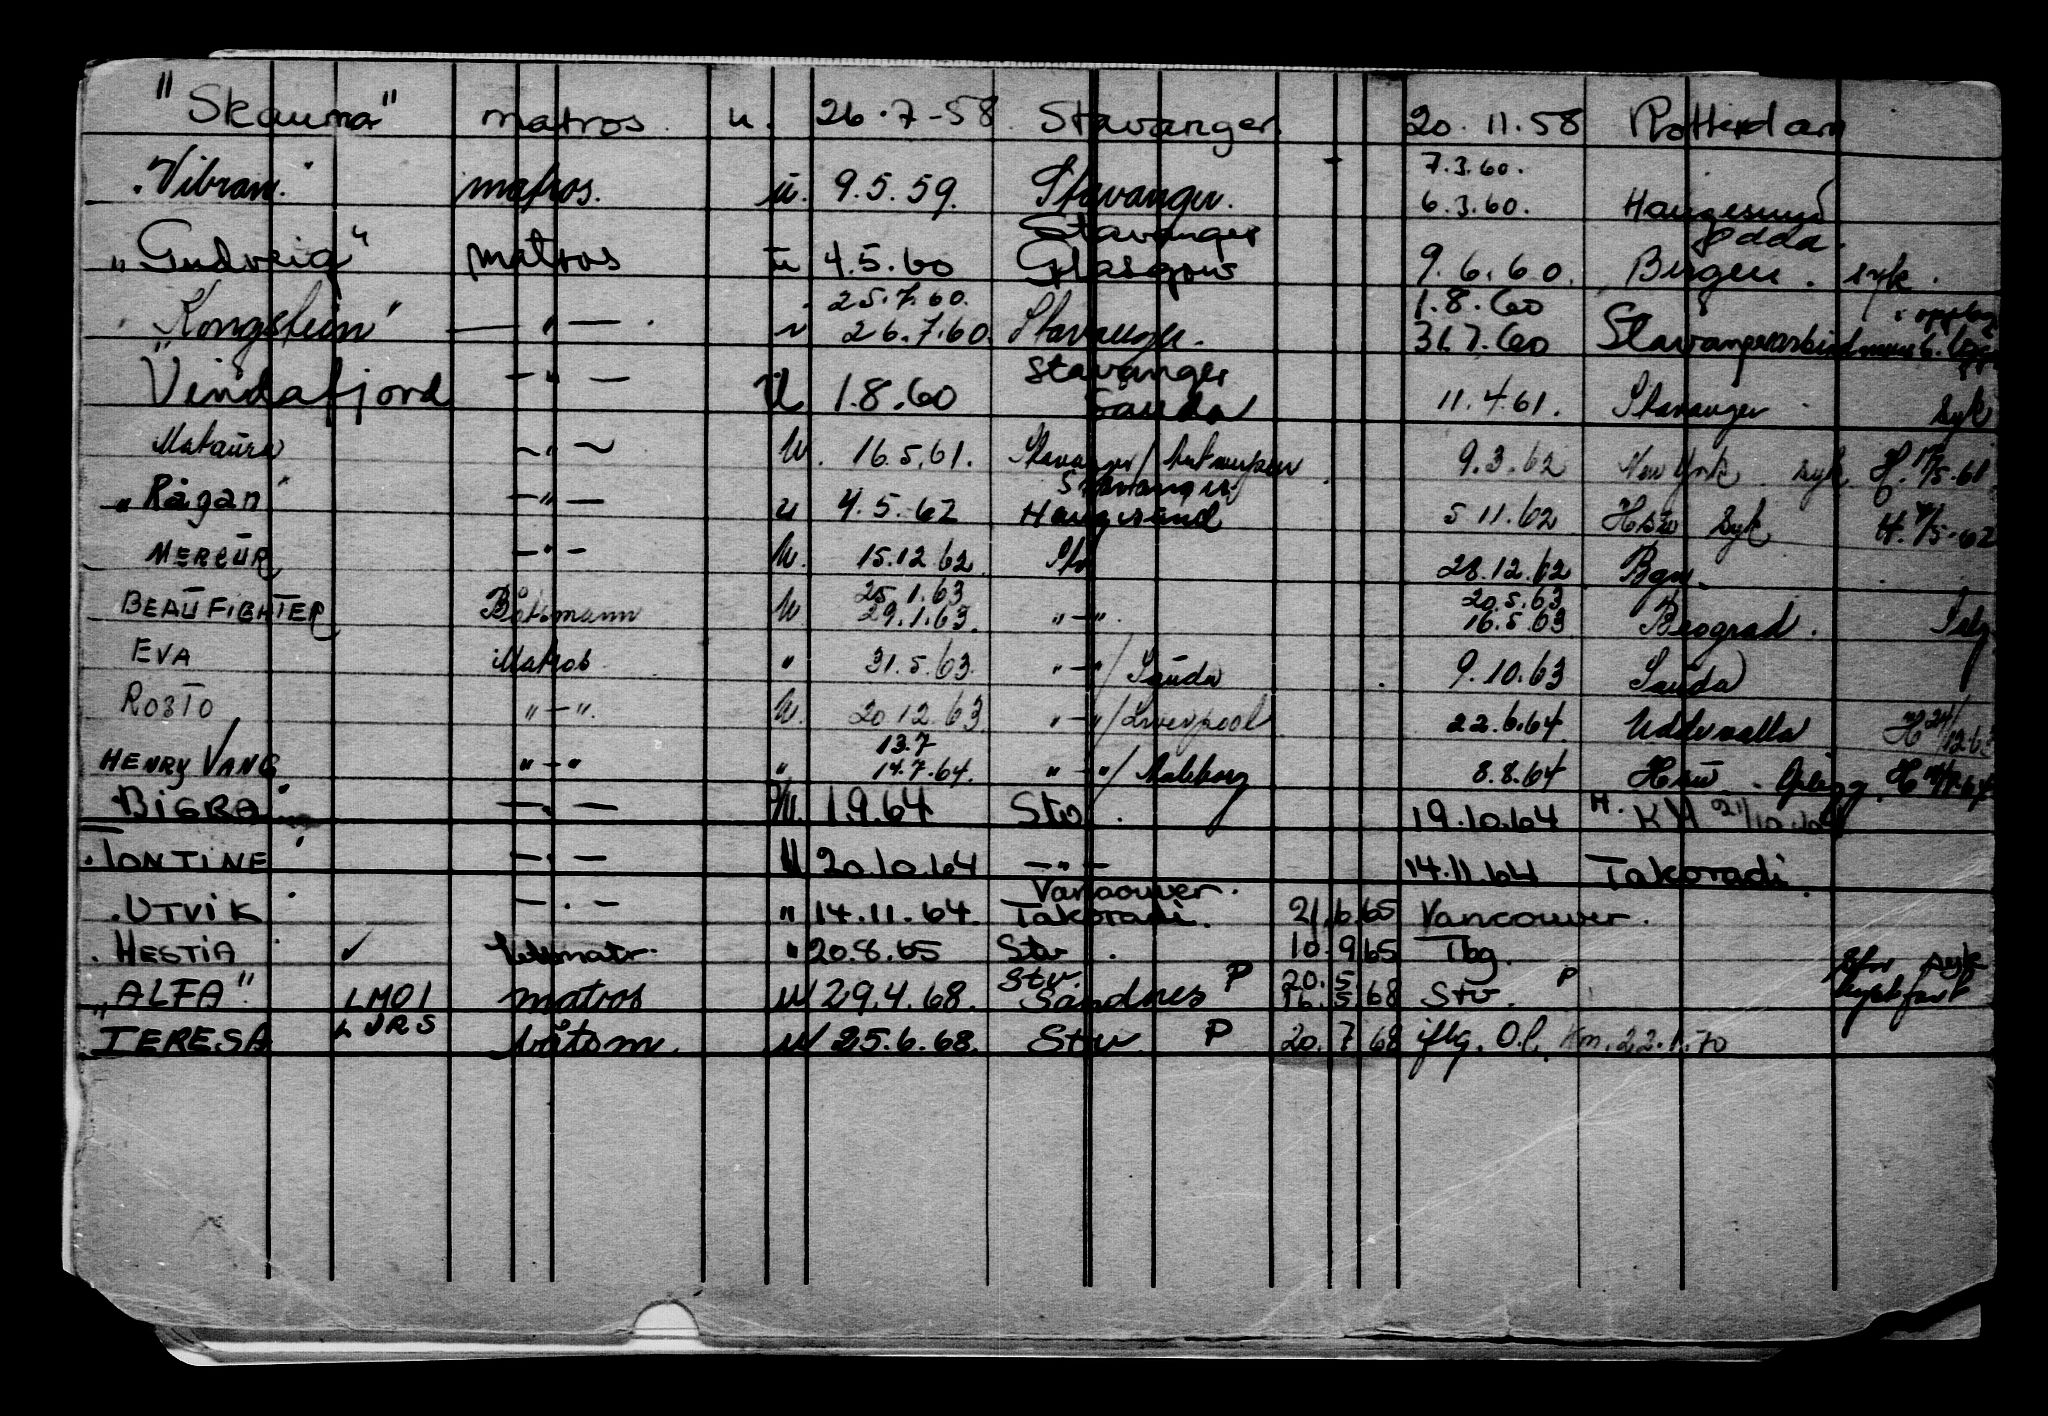 "Skauma" matros. u. 26.7-58 Stavanger. 20.11.58 Rotterdam
7.3.60.
"Vibran." matros. u. 9.5.59. Stavanger. 6.3.60. Haugesund
Stavanger Odda.
"Gudveig" matros u 4.5.60 Glasgow 9.6.60. Bergen. syk.
25.7.60. 1.8.60
"Kongstein" — " — . u 26.7.60. Stavanger. 31.7.60
Stavanger
"Vindafjord — " — u 1.8.60 Sauda 11.4.61. Stavanger syk
Mataura — " — u. 16.5.61. Stavanger/Antwerpen 9.3.62 New York syk H. 15/5-61
Stavanger
"Rågan" — " — u 4.5.62 Haugesund 5 11.62 Hsw syk H. 4/5-62
MERCUR — " — u. 15.12.62 Stv 28.12.62 Bgn.
25.1.63 20.5.63
BEAUFIGHTER Båtsmann u 29.1.63. " — ". 16.5.63 Beograd.
EVA Matros " 31.5.63. " — " / Sauda 9.10.63 Sauda
ROSTO " — ". u. 20 12.63 " — " / Liverpool 22.6.64. Uddevalla
13.7
HENRY VANG " — " " 14.7.64. " — " / 8.8.64
"BIGRA" — " — u. 1.9.64 Stv. 19.10.64
"TONTINE" — " — u 20.10.64 — " — 14.11.64 Takoradi.
Vancouver.
"UTVIK" — " — " 14.11.64. Takoradi. 21.6.65 Vancouver.
"HESTIA ✓ " 20.8.65 Stv. 10.9.65 Tbg.
Stv. 20.5 syk
"ALFA" LMOI matros u 29.4.68. Sandnes P 16.5.68 Stv. P
TERESA LJRS båtsm. u 25.6.68. Stv P 20.7.68 iflg. O.l. Km. 22.1.70